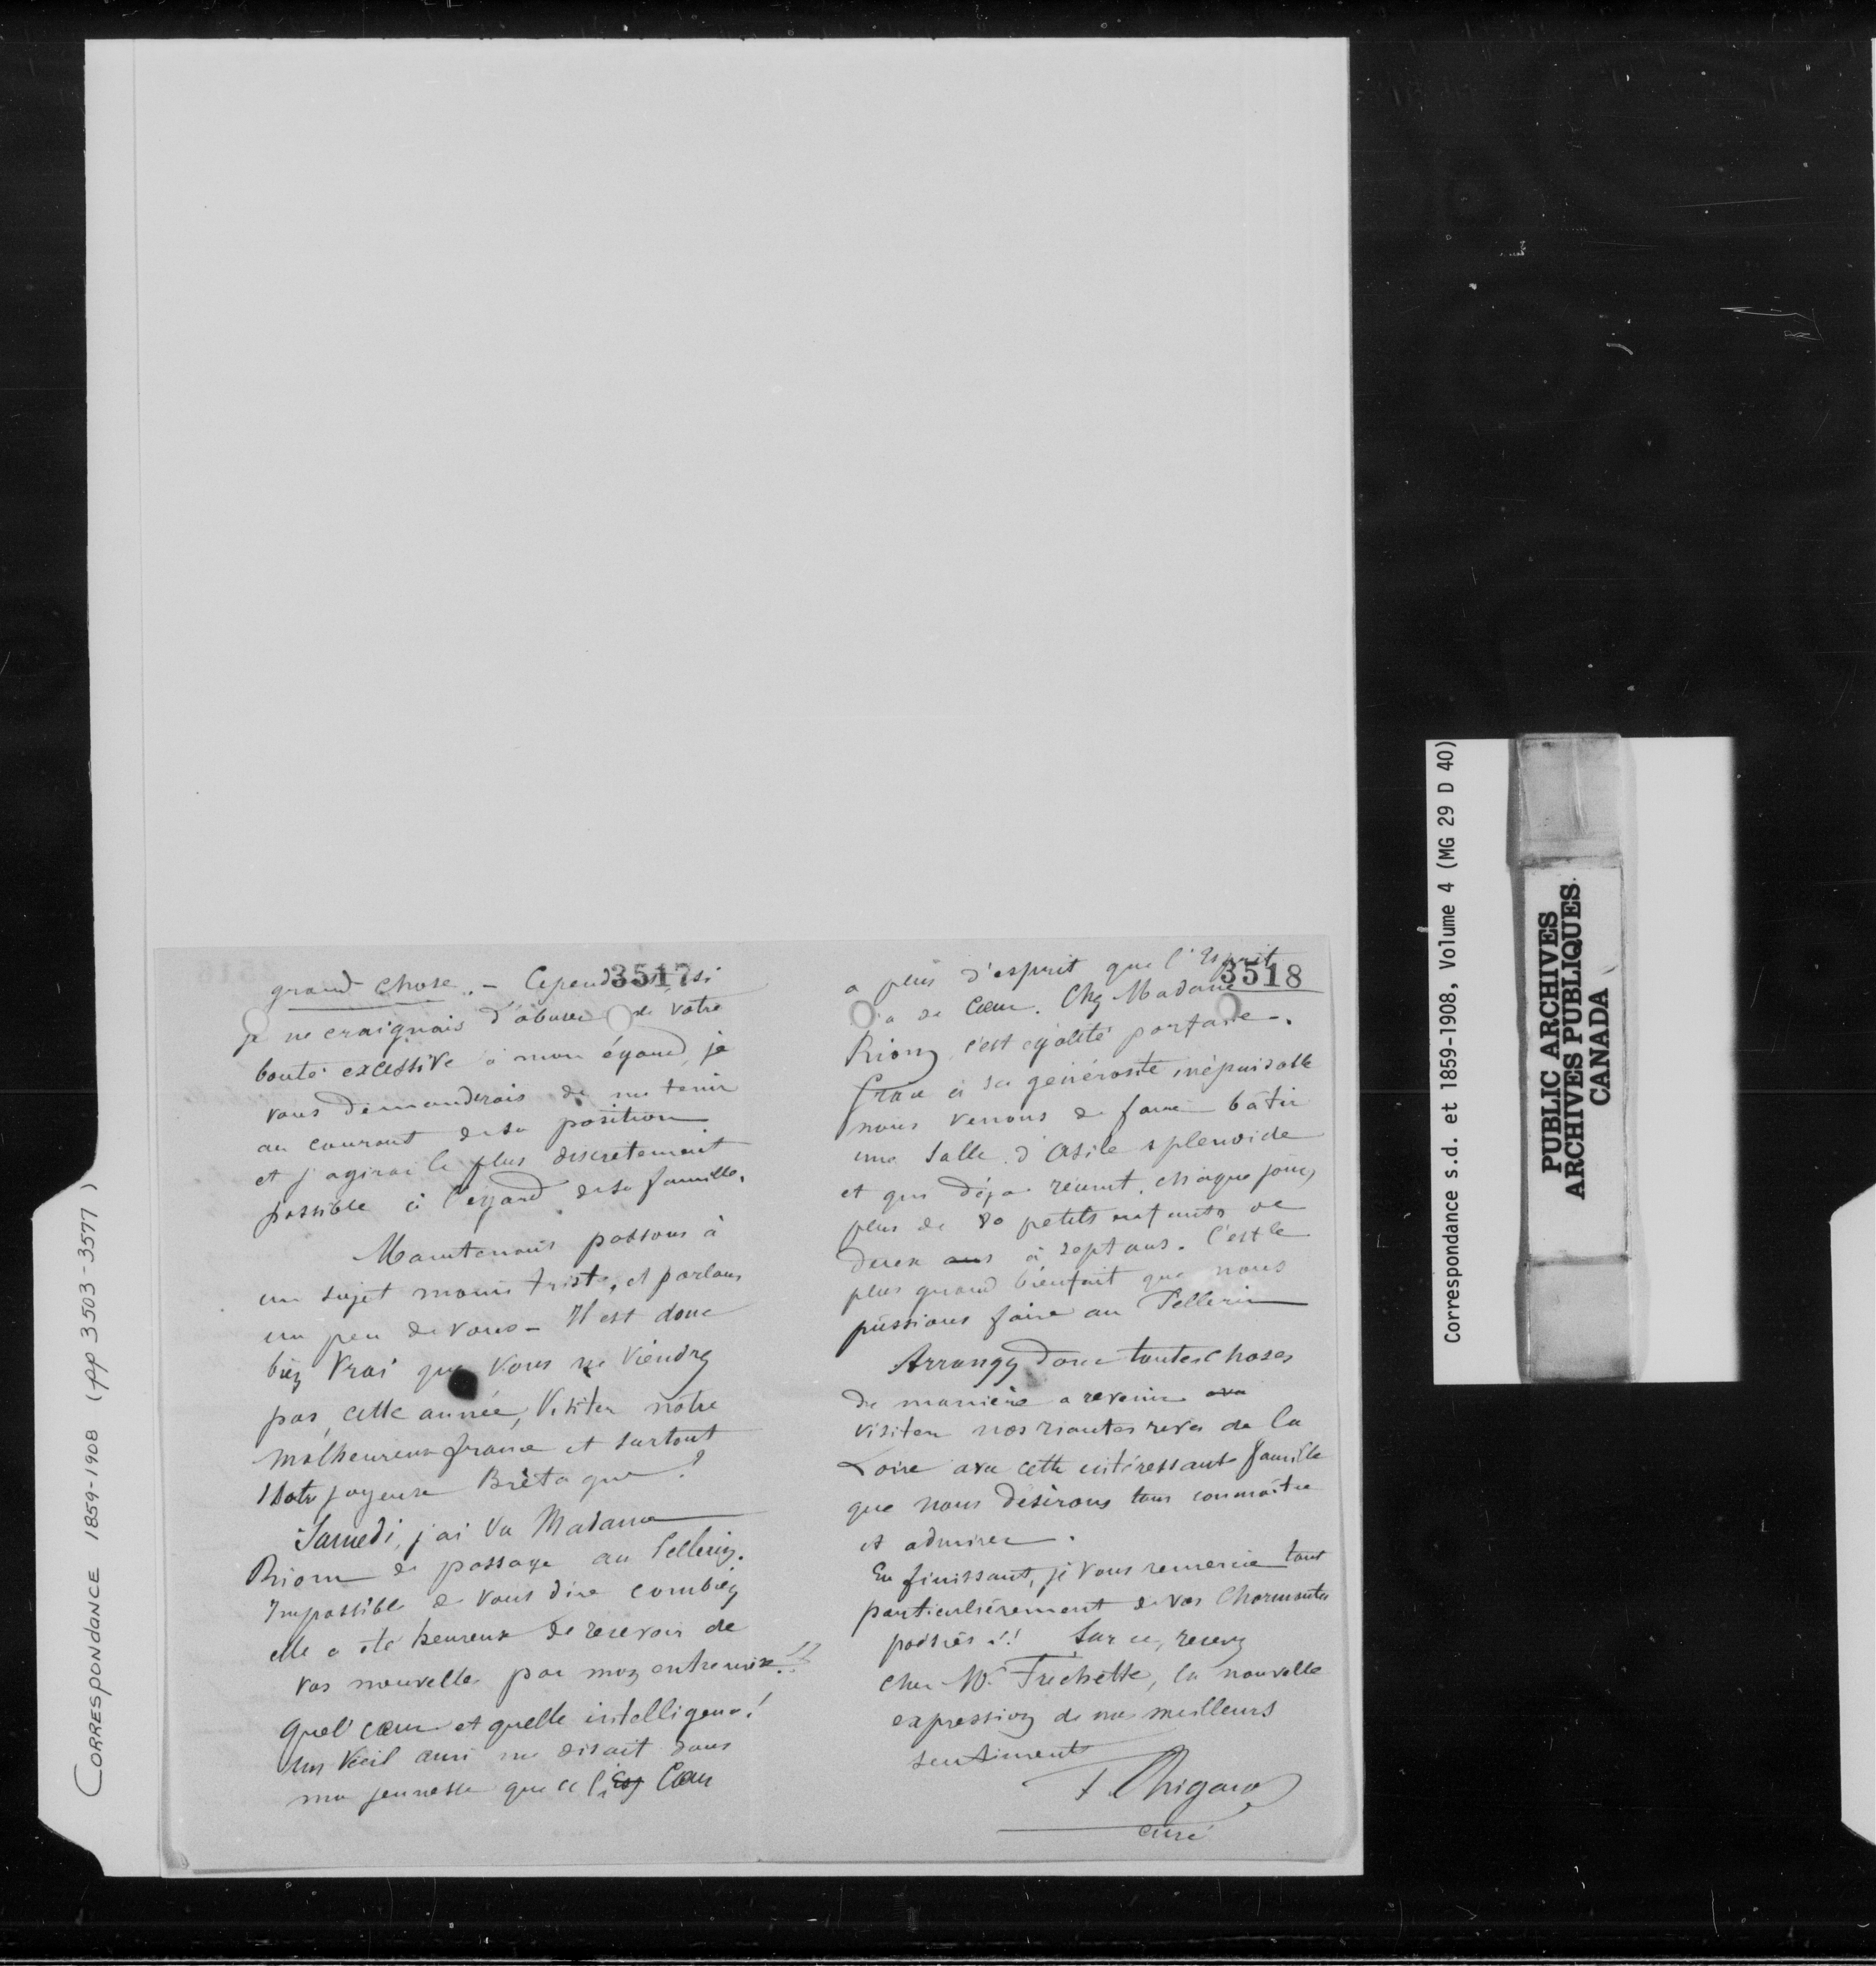 CORRESPONDANCE 1859-1908 (pp 3503-3577)
3517
grand chose. – Cependant, si
je ne craignais d'abuser de votre
bonté excessive à mon égard, je
vous demanderais de me tenir
au courant de sa position
et j'agirai le plus discretement
possible à l'égard de sa famille.
Maintenant passons à
un sujet moins triste, et parlons
un peu de vous – Il est donc
bien vrai que vous ne viendrez
pas, cette année, visiter notre
malheureuse france et surtout
notre joyeuse Bretagne ?
Samedi, j'ai vu Madame
Riom de passage au Pellerin.
Impossible de vous dire combien
elle a été heureuse de recevoir de
vos nouvelles par mon entremise !!
Quel cœur et quelle intelligence !
Un vieil ami me disait dans
ma jeunesse que ce Cœur
3518
a plus d'esprit que l'Esprit
n'a de Cœur. Chez Madame
Riom, c'est égalité parfaite –.
Grace à sa générosité inépuisable
nous venons de faire bâtir
une Salle d'Asile splendide
et qui déja réunit, chaque jour,
plus de 80 petits enfants de
deux ans à sept ans. C'est le
plus grand bienfait que nous
puissions faire au Pellerin
Arrangez donc toutes choses
de manière a revenir
visiter nos riantes rives de la
Loire avec cette intéressante famille
que nous désirons tous connaître
et admirer.
En finissant, je vous remercie tout
particulièrement de vos Charmantes
poësies !! Sur ce, recevez
cher Mr. Frechette, la nouvelle
expression de mes meilleurs
sentiments
curé
Correspondance s.d. et 1859-1908, Volume 4 (MG 29 D 40)
PUBLIC ARCHIVES
ARCHIVES PUBLIQUES
CANADA